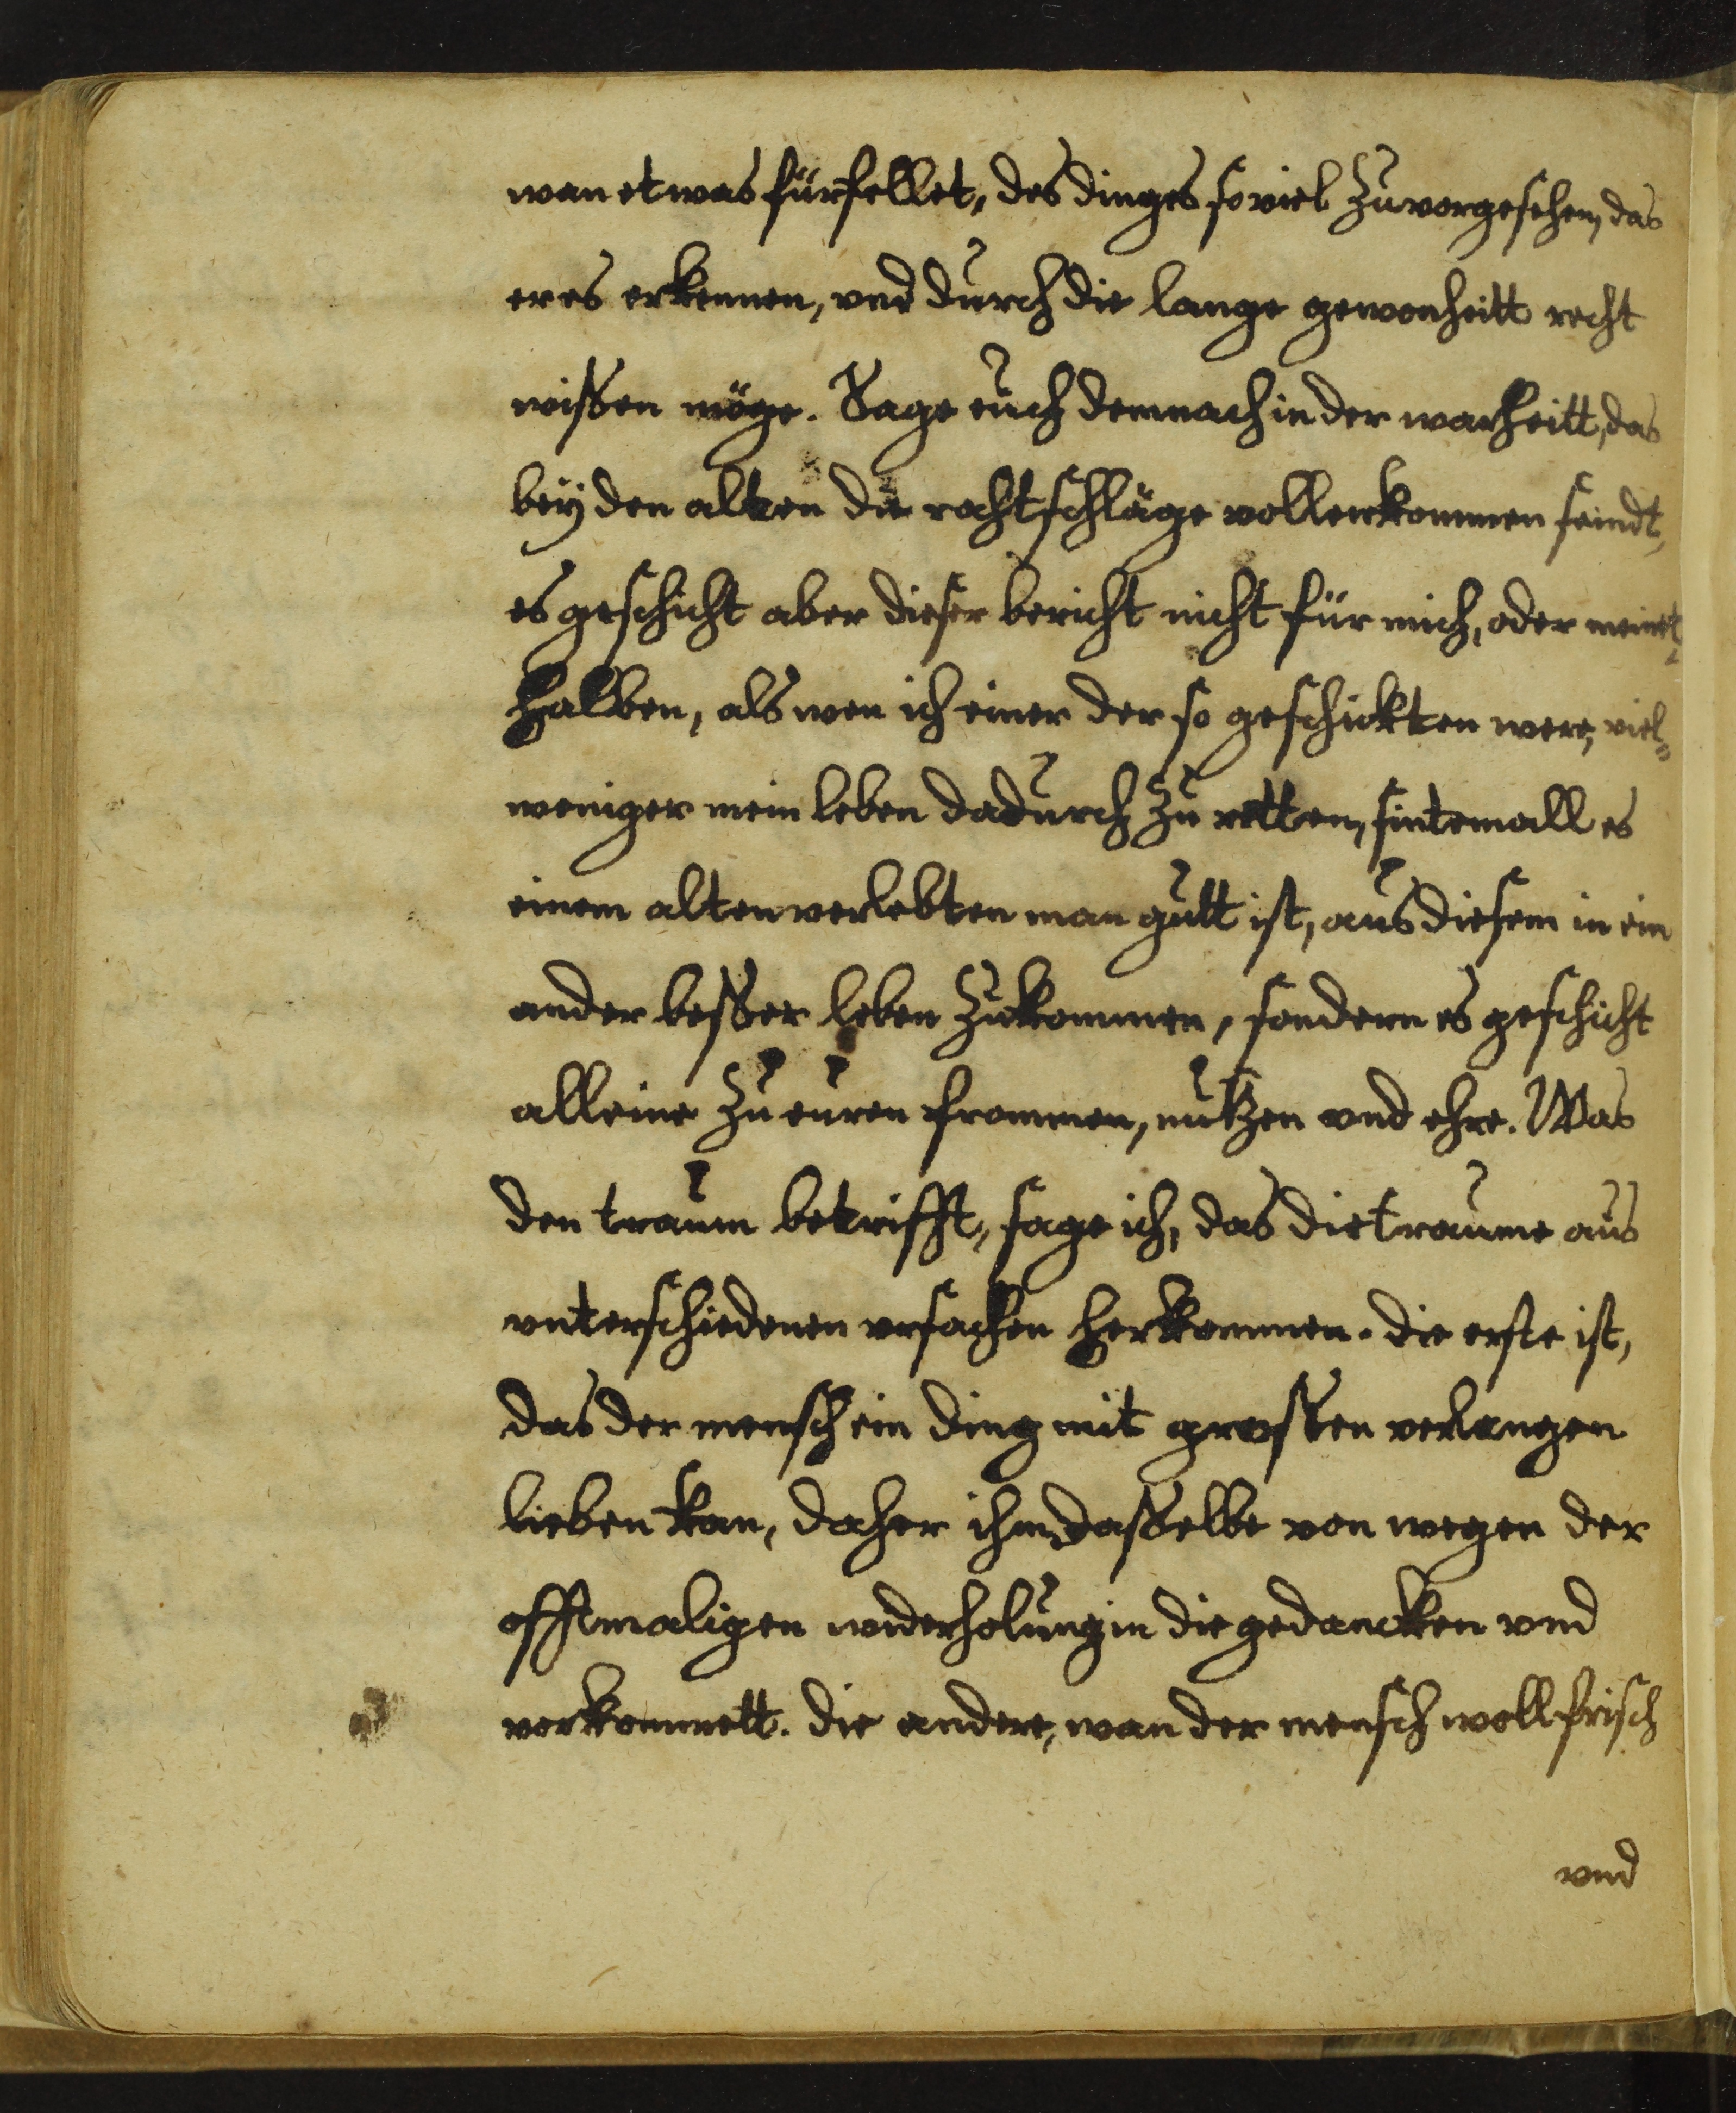 wan etwas fürfellet, des dinges so viel zuvorgesehen, das
er es erkennen, vnd durch die lange gewonheitt recht
wissen möge. Sage euch demnach in der warheitt, das
bey den alten die rahtschläge vollenkommen seindt,
es geschicht aber dieser bericht nicht für mich, oder meinet-
halben, als wen ich einer der so geschickten were, viel-
weniger mein leben dadurch zu retten, sintemall es
einem alten verlebten man gutt ist, aus diesem in ein
ander besser leben zukommen, sondern es geschicht
alleine zu euren frommen, nutzen vnd ehre. Was
den traum betrifft, sage ich, das die traume aus
vnterschiedenen vrsachen herkommen. die erste ist,
das der mensch ein ding mit grossen verlangen
lieben kan, daher ihm dasselbe von wegen der
offtmaligen widerholung in die gedancken vnd
vorkommett. die andere, wan der mensch woll frisch
vnd